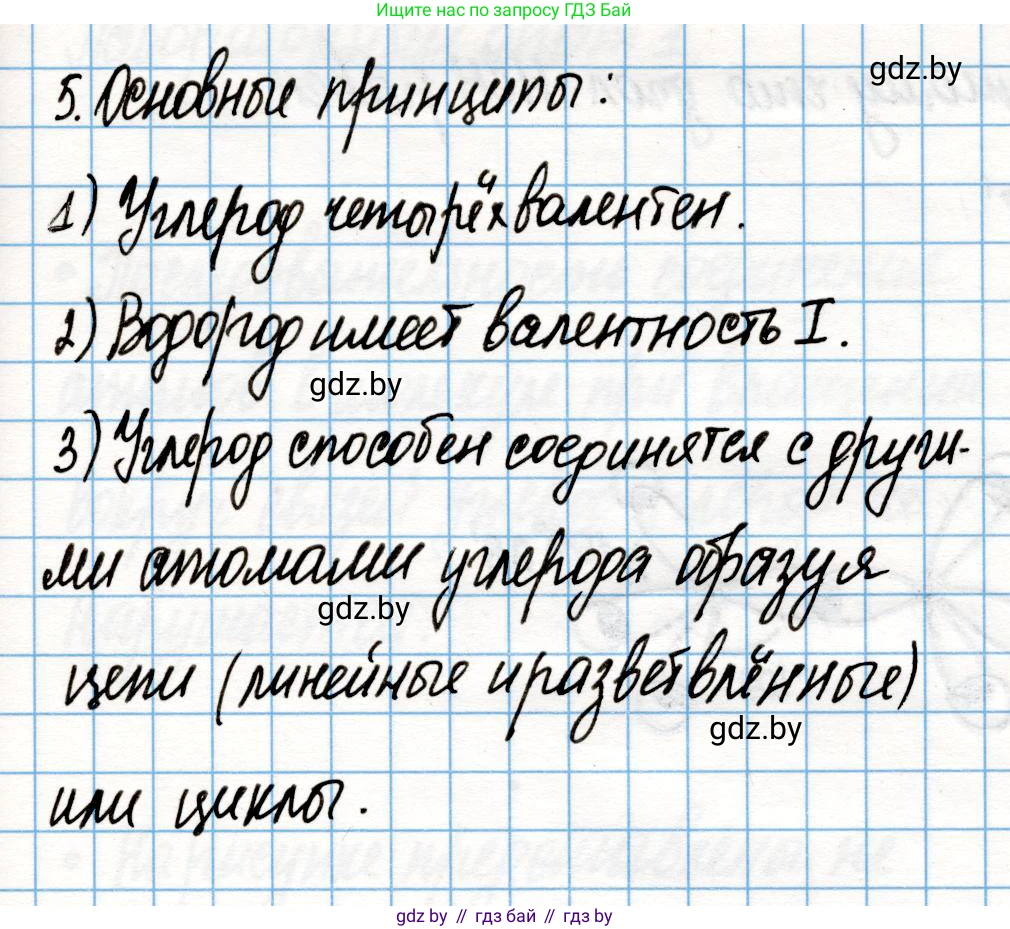 Ищите нас по запросу ГДЗ Бай
gdz.by
5. Основные принципы:
1) Углерод четырёхвалентен.
2) Водород имеет валентность I.
gdz.by
3) Углерод способен соединятся с други-
ми атомами углерода образуя
gdz.by
цепи (линейные и разветвлённые)
gdz.by
или циклы.
gdz.by // гдз бай // гдз by